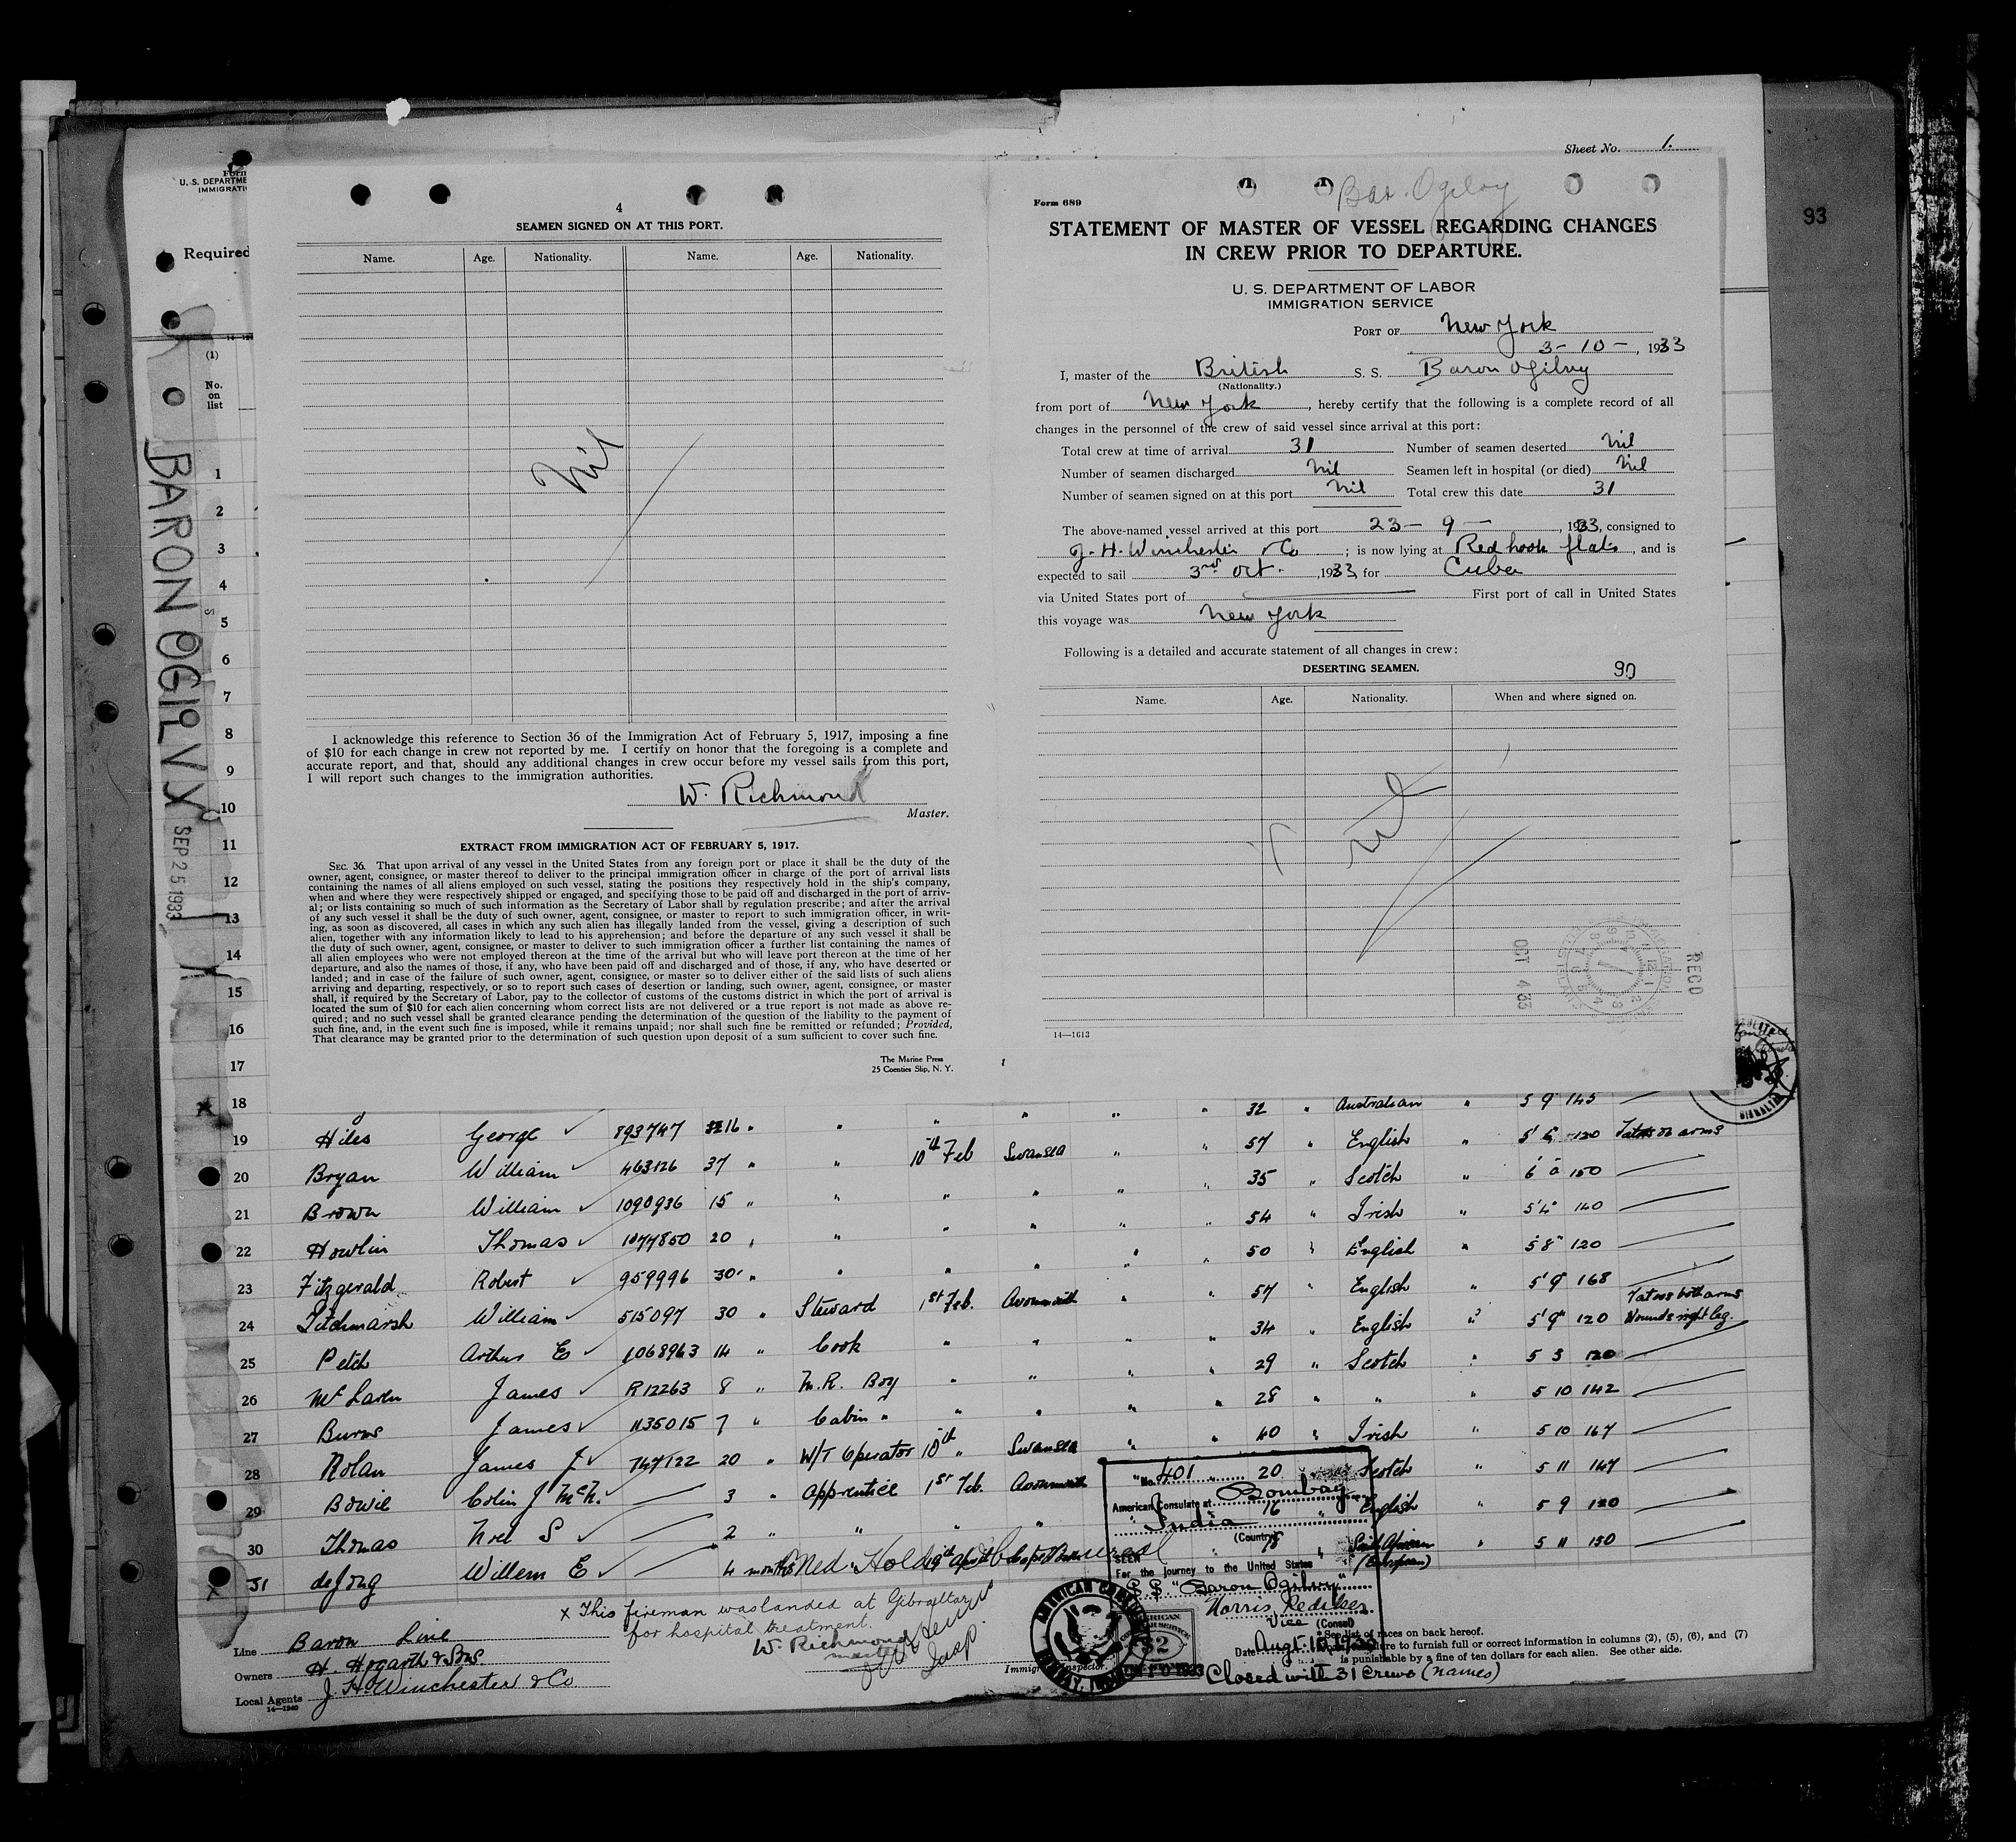 Sheet No. 1.
93
Form
U. S. DEPARTME
IMMIGRATI
Required
(1)
No.
on
list
BARON OGILVY
SEP 25 1933
4
SEAMEN SIGNED ON AT THIS PORT.
Name. Age. Nationality. Name. Age. Nationality.
Nil
I acknowledge this reference to Section 36 of the Immigration Act of February 5, 1917, imposing a fine
of $10 for each change in crew not reported by me. I certify on honor that the foregoing is a complete and
accurate report, and that, should any additional changes in crew occur before my vessel sails from this port,
I will report such changes to the immigration authorities.
W. Richmond
Master.
EXTRACT FROM IMMIGRATION ACT OF FEBRUARY 5, 1917.
SEC. 36. That upon arrival of any vessel in the United States from any foreign port or place it shall be the duty of the
owner, agent, consignee, or master thereof to deliver to the principal immigration officer in charge of the port of arrival lists
containing the names of all aliens employed on such vessel, stating the positions they respectively hold in the ship's company,
when and where they were respectively shipped or engaged, and specifying those to be paid off and discharged in the port of arriv-
al; or lists containing so much of such information as the Secretary of Labor shall by regulation prescribe; and after the arrival
of any such vessel it shall be the duty of such owner, agent, consignee, or master to report to such immigration officer, in writ-
ing, as soon as discovered, all cases in which any such alien has illegally landed from the vessel, giving a description of such
alien, together with any information likely to lead to his apprehension; and before the departure of any such vessel it shall be
the duty of such owner, agent, consignee, or master to deliver to such immigration officer a further list containing the names of
all alien employees who were not employed thereon at the time of the arrival but who will leave port thereon at the time of her
departure, and also the names of those, if any, who have been paid off and discharged and of those, if any, who have deserted or
landed; and in case of the failure of such owner, agent, consignee, or master so to deliver either of the said lists of such aliens
arriving and departing, respectively, or so to report such cases of desertion or landing, such owner, agent, consignee, or master
shall, if required by the Secretary of Labor, pay to the collector of customs of the customs district in which the port of arrival is
located the sum of $10 for each alien concerning whom correct lists are not delivered or a true report is not made as above re-
quired; and no such vessel shall be granted clearance pending the determination of the question of the liability to the payment of
such fine, and, in the event such fine is imposed, while it remains unpaid; nor shall such fine be remitted or refunded; Provided,
That clearance may be granted prior to the determination of such question upon deposit of a sum sufficient to cover such fine.
The Marine Press
25 Coenties Slip, N. Y.
Bar. Ogilvy
Form 689
STATEMENT OF MASTER OF VESSEL REGARDING CHANGES
IN CREW PRIOR TO DEPARTURE.
U. S. DEPARTMENT OF LABOR
IMMIGRATION SERVICE
PORT OF New York
3-10-, 1933
I, master of the British S. S. Baron Ogilvy
(Nationality.)
from port of New York, hereby certify that the following is a complete record of all
changes in the personnel of the crew of said vessel since arrival at this port:
Total crew at time of arrival 31 Number of seamen deserted Nil
Number of seamen discharged Nil Seamen left in hospital (or died) Nil
Number of seamen signed on at this port Nil Total crew this date 31
The above-named vessel arrived at this port 23-9-, 1933, consigned to
J. H. Winchester & Co; is now lying at Red hook flats, and is
expected to sail 3rd Oct., 1933, for Cuba
via United States port of First port of call in United States
this voyage was New York
Following is a detailed and accurate statement of all changes in crew:
DESERTING SEAMEN.
90
Name. Age. Nationality. When and where signed on.
nil
RECD
OCT 4 33
14—1613
1
2
3
4
5
6
7
8
9
10
11
12
13
14
15
16
17
18 " " " 32 " Australian " 5 9 145
19 Hiles George 893747 16 " " 10th Feb Swansea " " 57 " English " 5' 6 120 Tattoo on arms
20 Bryan William 463126 37 " " " " " " 35 " Scotch " 6' 0 150
21 Brown William 1090936 15 " " " " " " 54 " Irish " 5'4" 140
22 Howlin Thomas 1077850 20 " " " " " " 50 " English " 5'8" 120
23 Fitzgerald Robert 959996 30 " " " " " " 57 " English " 5'9" 168
24 Titchmarsh William 515097 30 " Steward 1st Feb. Avonmouth " " 34 " English " 5'9" 120 Tattoos both arms Wounds right leg.
25 Petch Arthur E 1068963 14 " Cook " " " " 29 " Scotch " 5 3 120
26 McLaren James R12263 8 " M.R. Boy " " " " 28 " " " 5 10 142
27 Burns James 1135015 7 " Cabin " " " " " 40 " Irish " 5 10 167
28 Nolan James J 747122 20 " W/T Operator 10th " Swansea 20 Scotch " 5 11 147
29 Bowie Colin J McN. 3 " Apprentice 1st Feb. Avonmouth " 16 " English " 5 9 120
30 Thomas Noel S 2 " " " " 18 " South African (European) " 5 11 150
31 de Jong Willem E 4 months
x This fireman was landed at Gibraltar
for hospital treatment.
W. Richmond
master
Insp.
Line Baron Line
Owners H. Hogarth & Sons.
Local Agents J. H. Winchester & Co.
14—1240
Immigr Inspector.
No. 401
American Consulate at Bombay
India
(Country)
SEEN
For the journey to the United States
S.S. "Baron Ogilvy"
Vice (Consul)
Date Augt. 1933
AMERICAN CONSU
BOMBAY, INDIA
$2
See list of races on back hereof.
re to furnish full or correct information in columns (2), (5), (6), and (7)
is punishable by a fine of ten dollars for each alien. See other side.
Closed with 31 Crews (names)